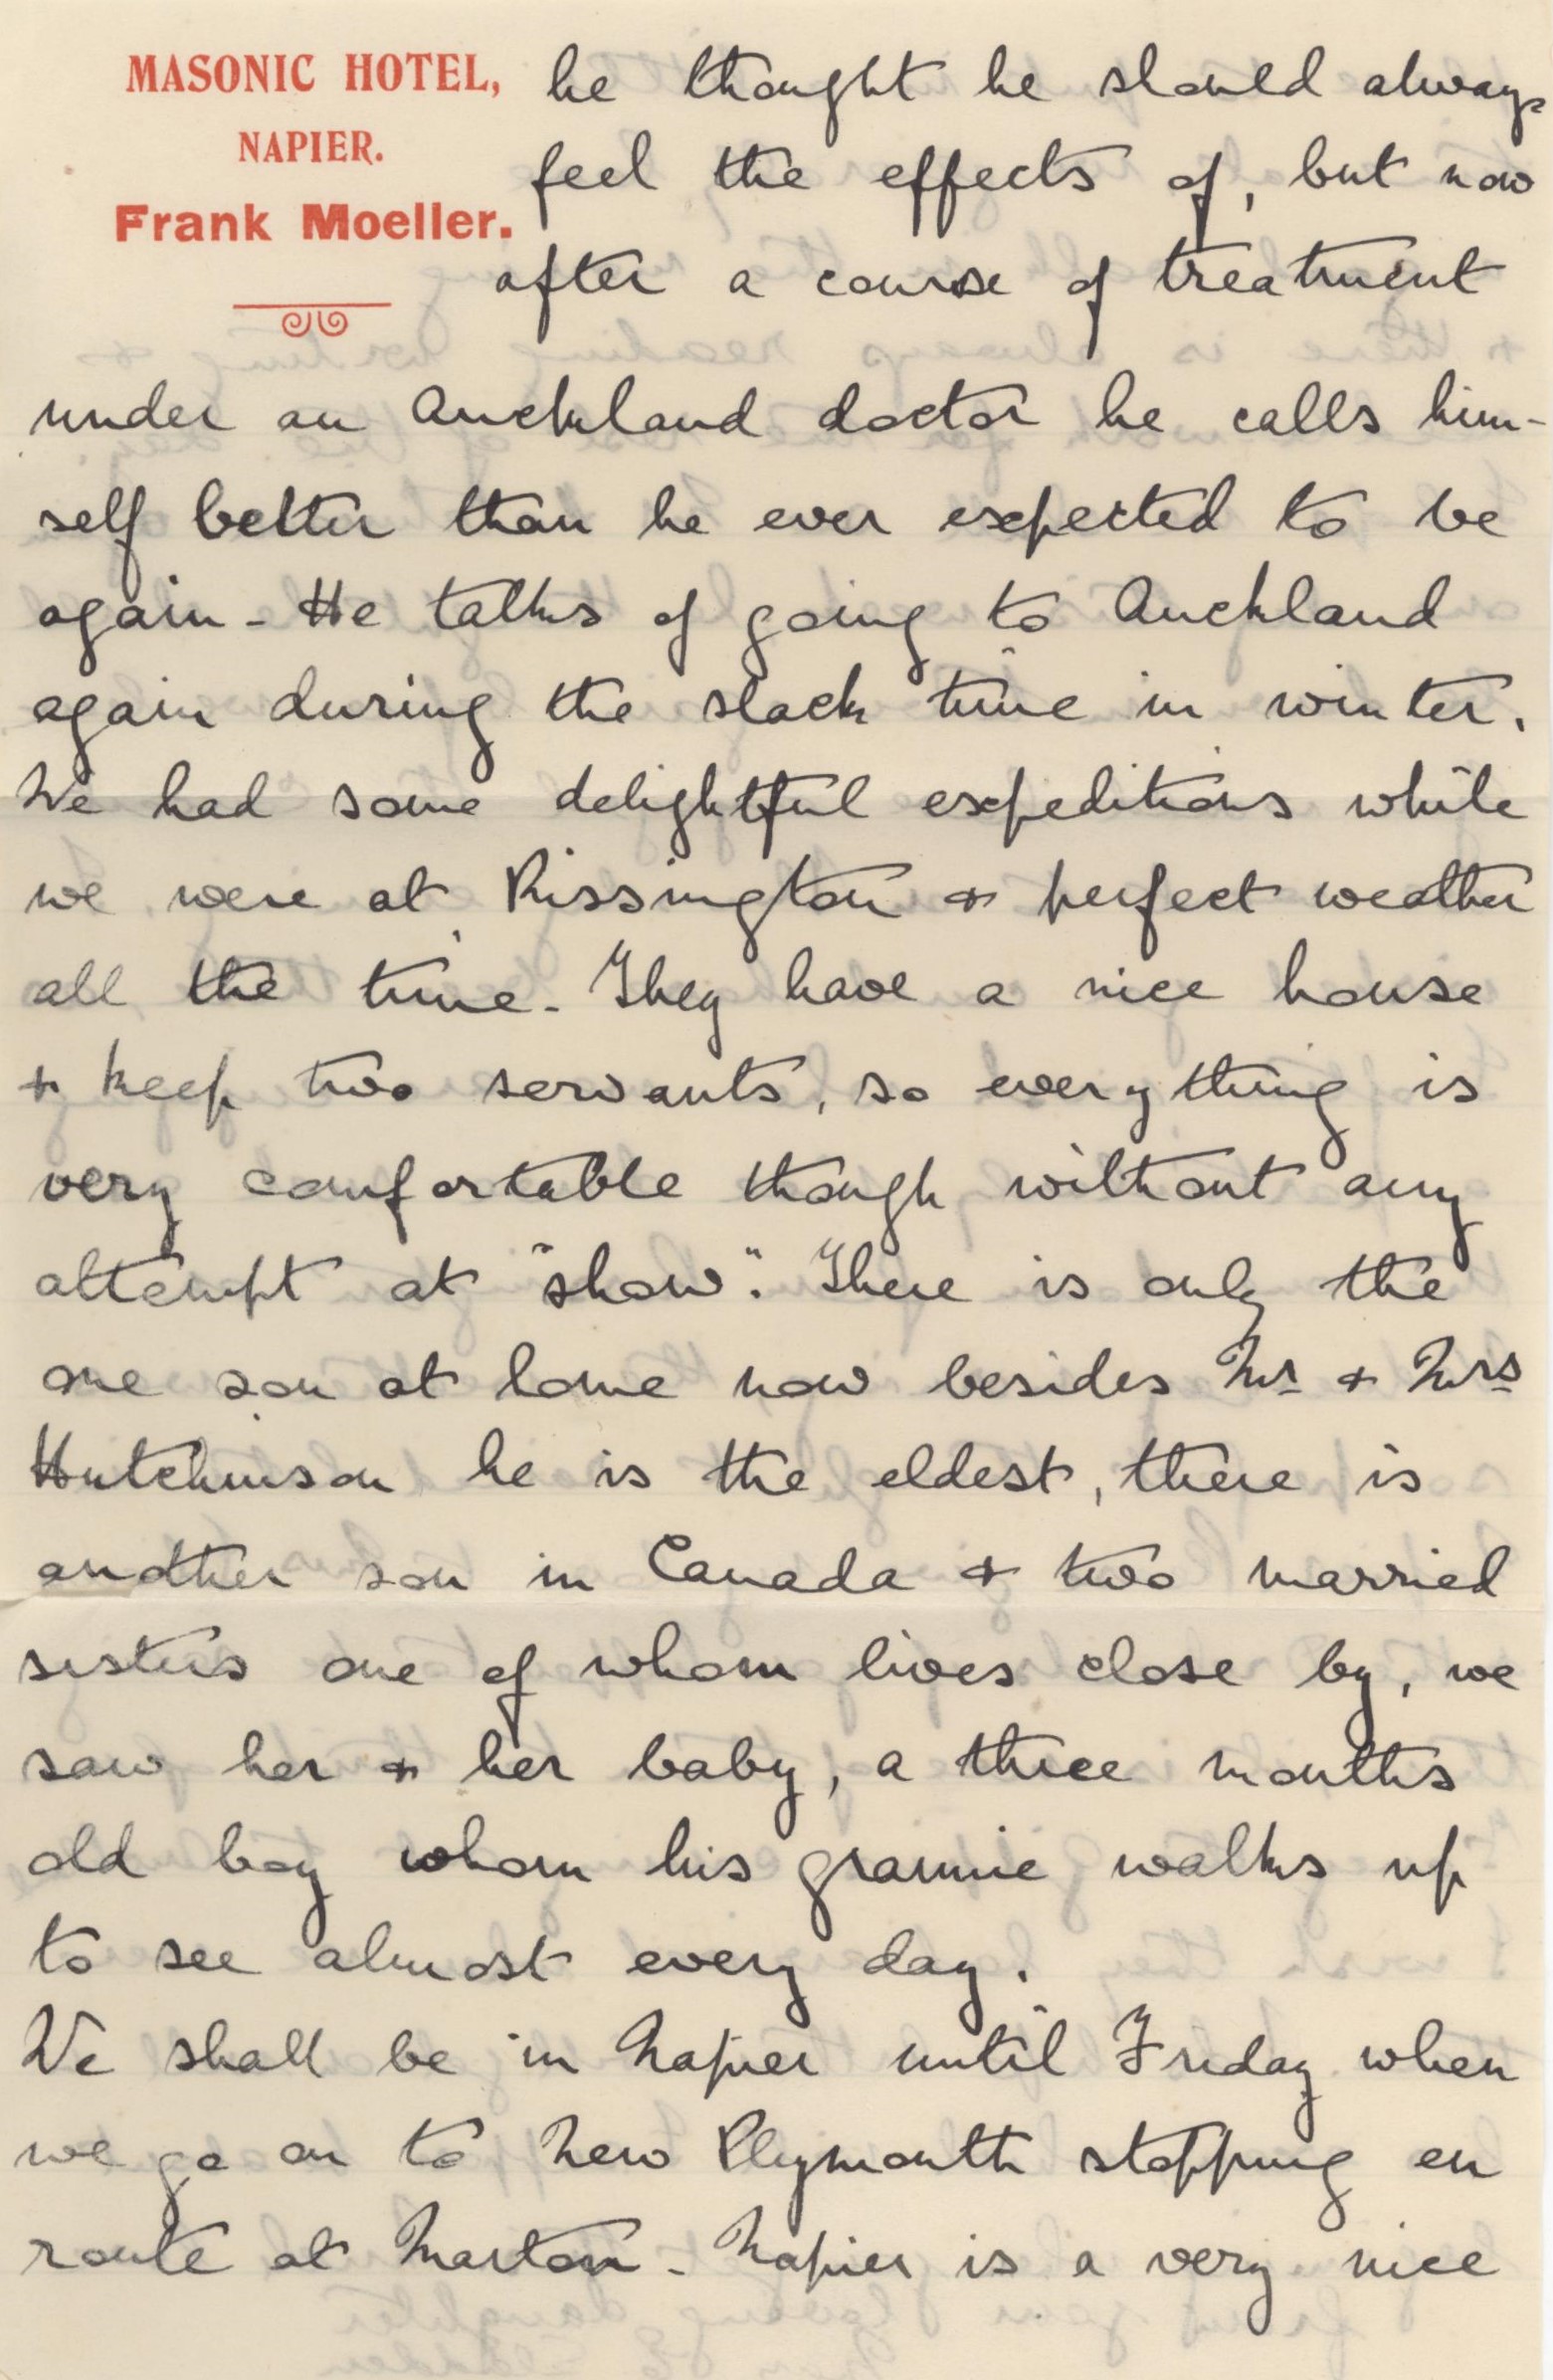 MASONIC HOTEL,
NAPIER.
Frank Moeller.
he thought he should always
feel the effects of, but now
after a course of treatment
under an Auckland doctor he calls him-
self better than he ever expected to be
again - He talks of going to Auckland
again during the slack time in winter.
We had some delightful expeditions while
we were at Rissington & perfect weather
all the time - They have a nice house
& keep two servants, so everything is
very comfortable though without any
attempt at "show". There is only the
one son at home now besides Mr & Mrs
Hutchinson he is the eldest, there is
another son in Canada & two married
sisters one of whom lives close by, we
saw her & her baby, a three months
old boy whom his grannie walks up
to see almost every day.
We shall be in Napier until Friday when
we go on to New Plymouth stopping en
route at Marton - Napier is a very nice